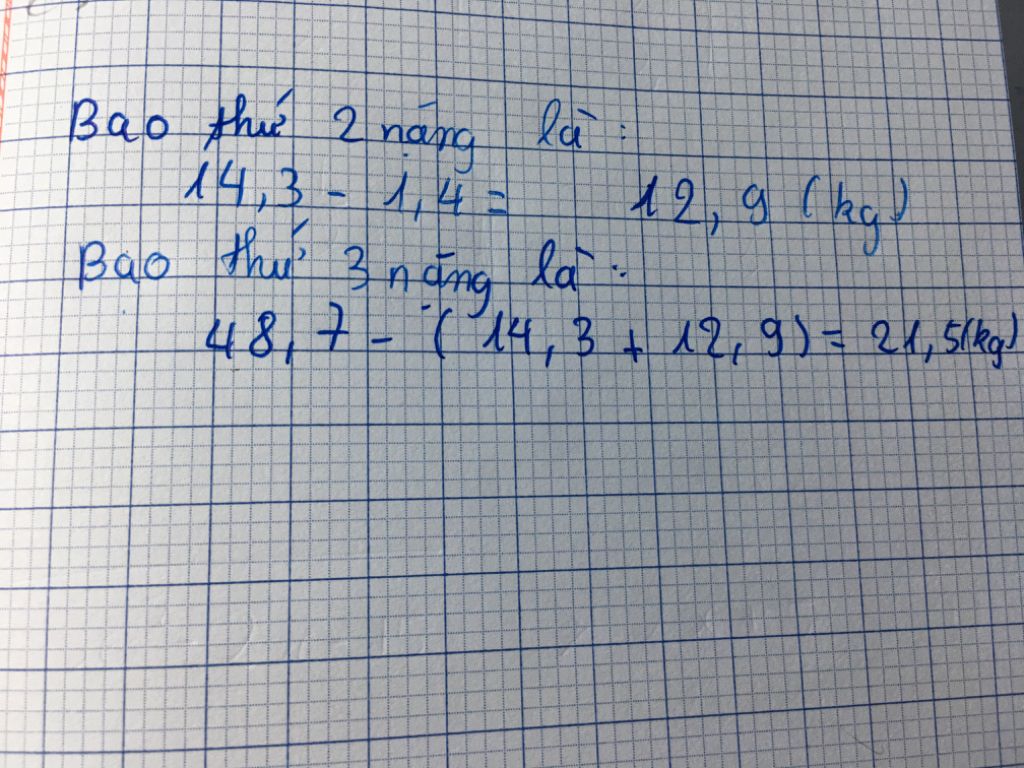 Bao thứ 2 nặng là:
14,3 - 1,4 = 12,9 (kg)
Bao thứ 3 nặng là:
48,7 - (14,3 + 12,9) = 21,5(kg)